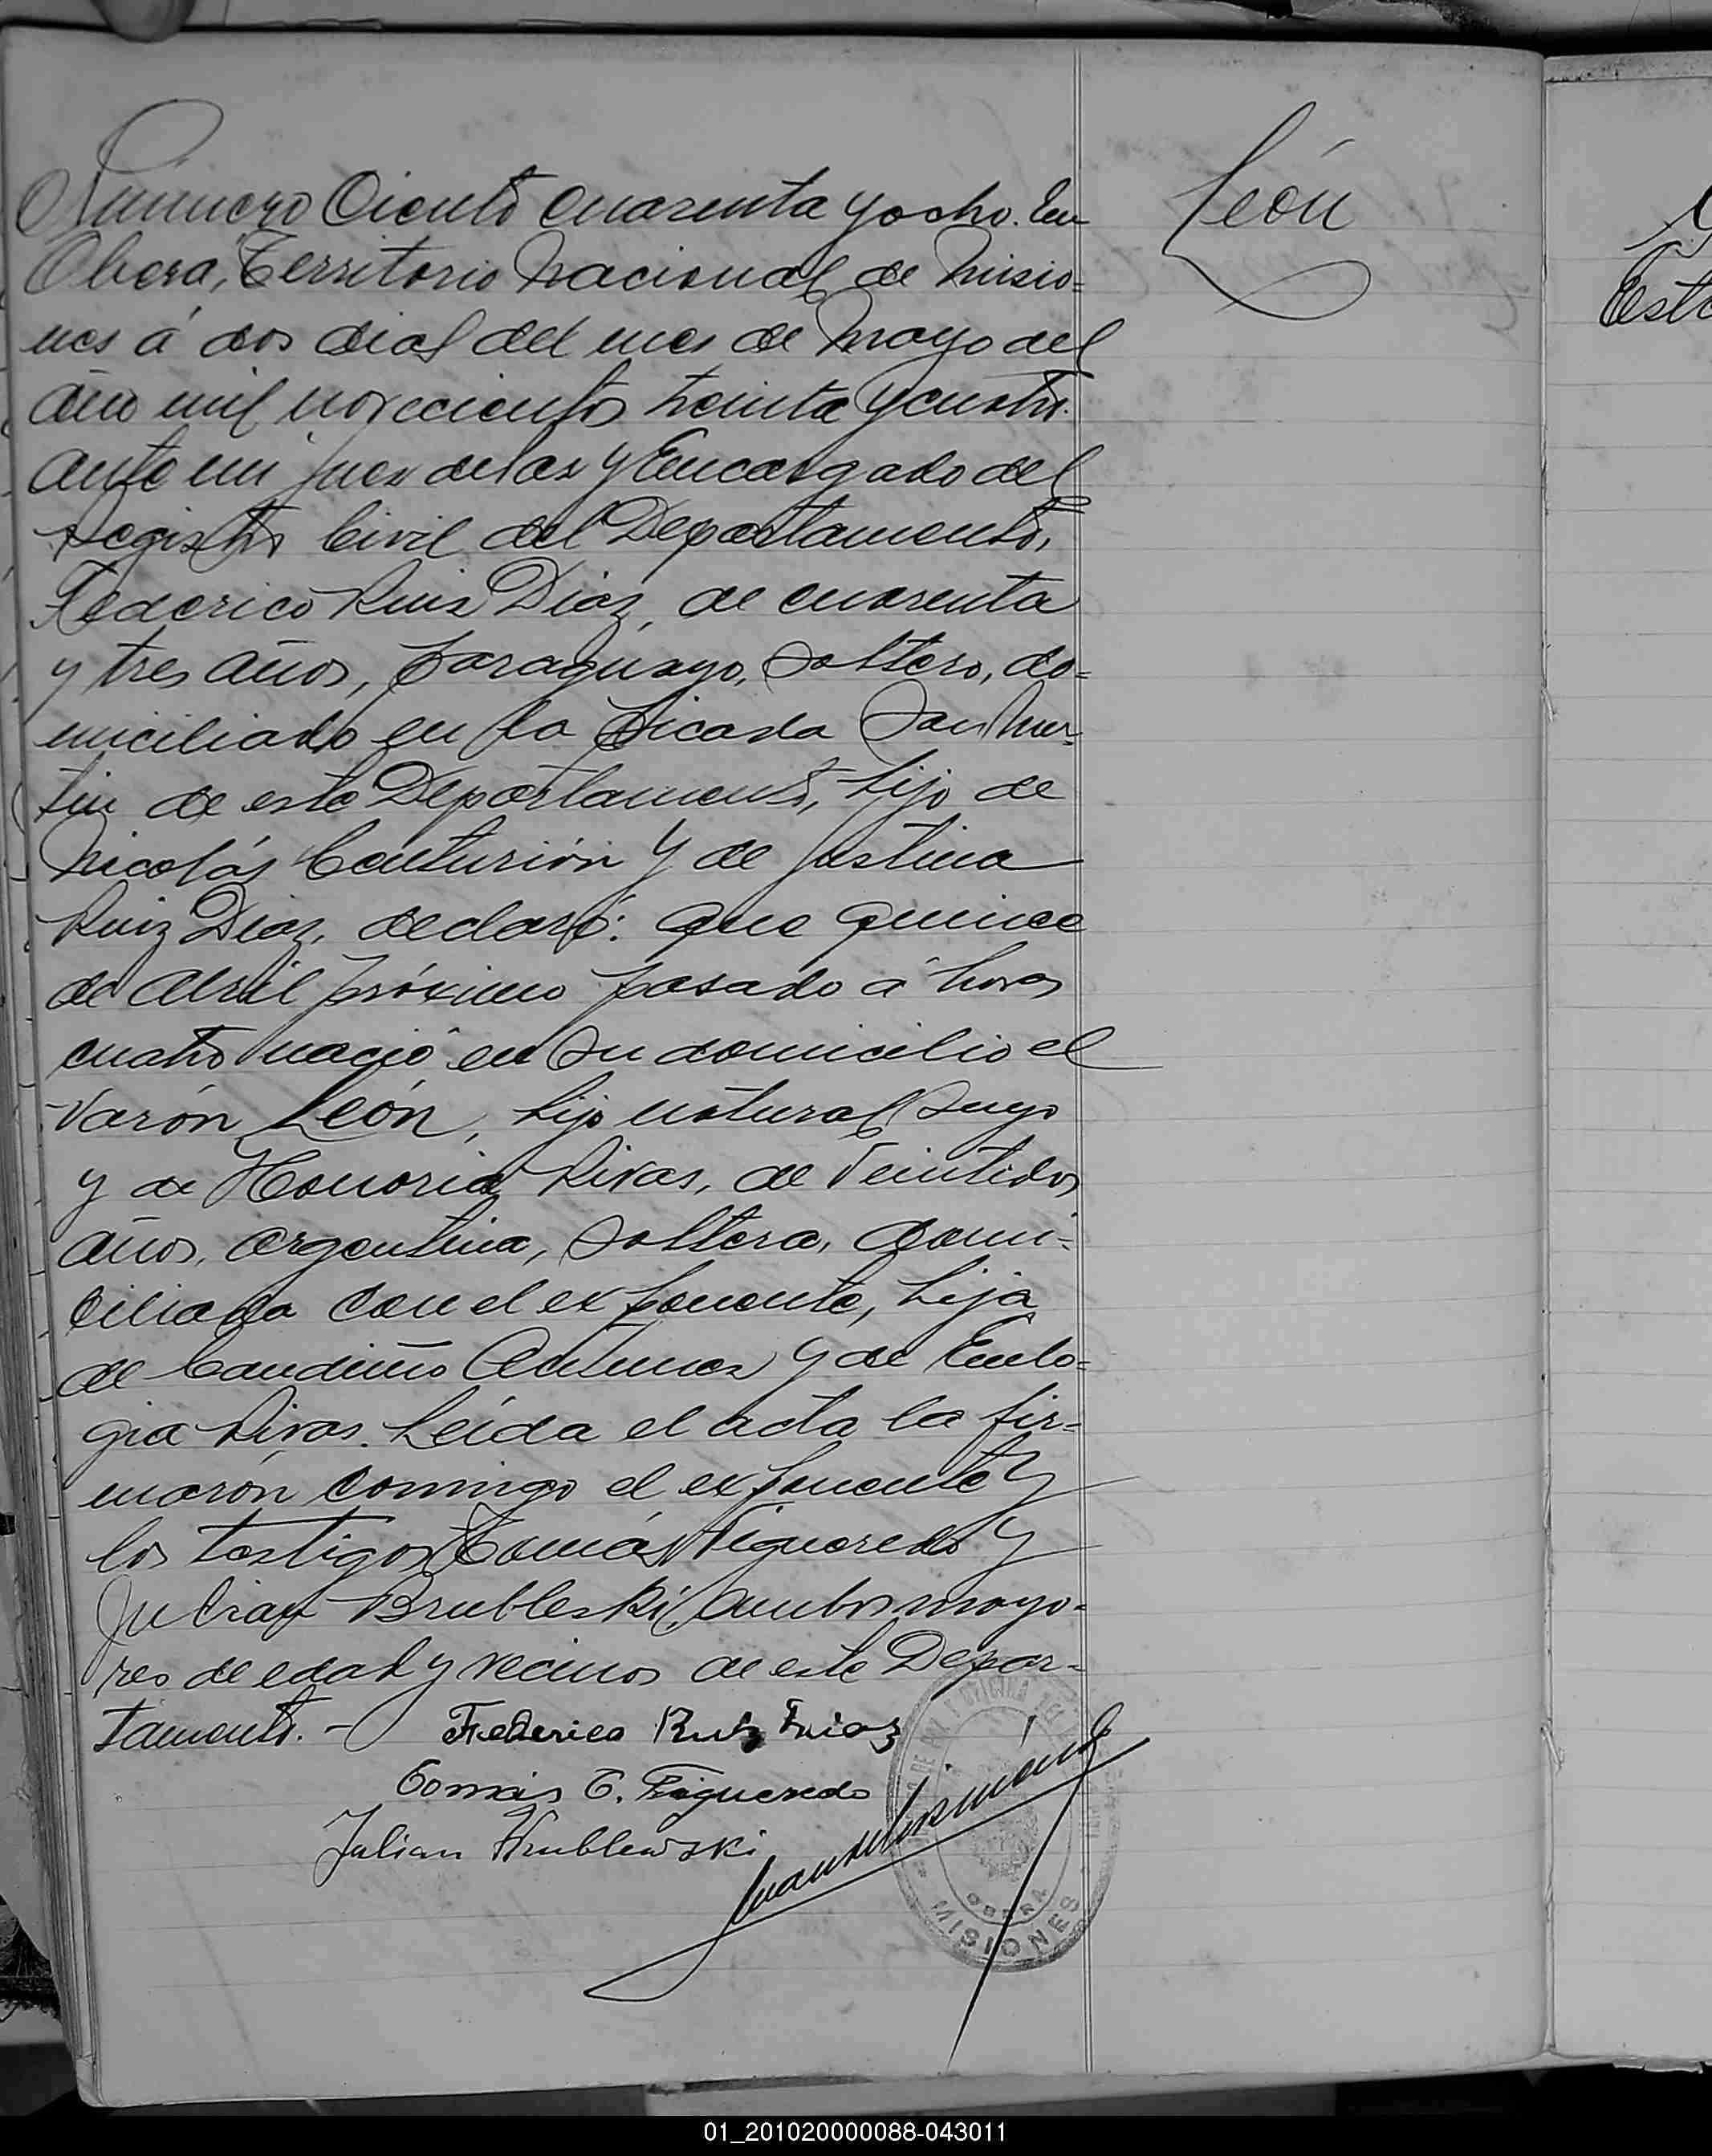 León
Número Ciento cuarenta y ocho. En
Obera, Territorio Nacional de Misio=
nes á dos dias del mes de Mayo del
año mil novecientos treinta y cuatro.
ante mi Juez de Paz y Encargado del
Registro Civil del Departamento,
Federico Ruiz Diaz, de cuarenta
y tres años, paraguayo, soltero, do=
miciliado en la picada San Mar-
tin de este Departamento, hijo de
Nicolás Centurión y de Justina
Ruiz Diaz, declaró: que quince
de Abril próximo pasado á horas
cuatro nació en su domicilio el
varón León, hijo natural suyo
y de Honoria Rivas, de veintidos
años, argentina, soltera, domi-
ciliada con el exponente, hija
de Candido Antunez y de Eulo=
gia Rivas. Leída el acta la fir=
marón conmigo el exponente y
los testigos Tomás Figueredo y
Julian Brubleski, ambos mayo-
res de edad y vecinos de este Depar-
tamento. -
Federico Ruiz Diaz
Tomás C. Figueredo
Julian Wrublewski
OBERA
MISIONES
Esta
01_201020000088-043011